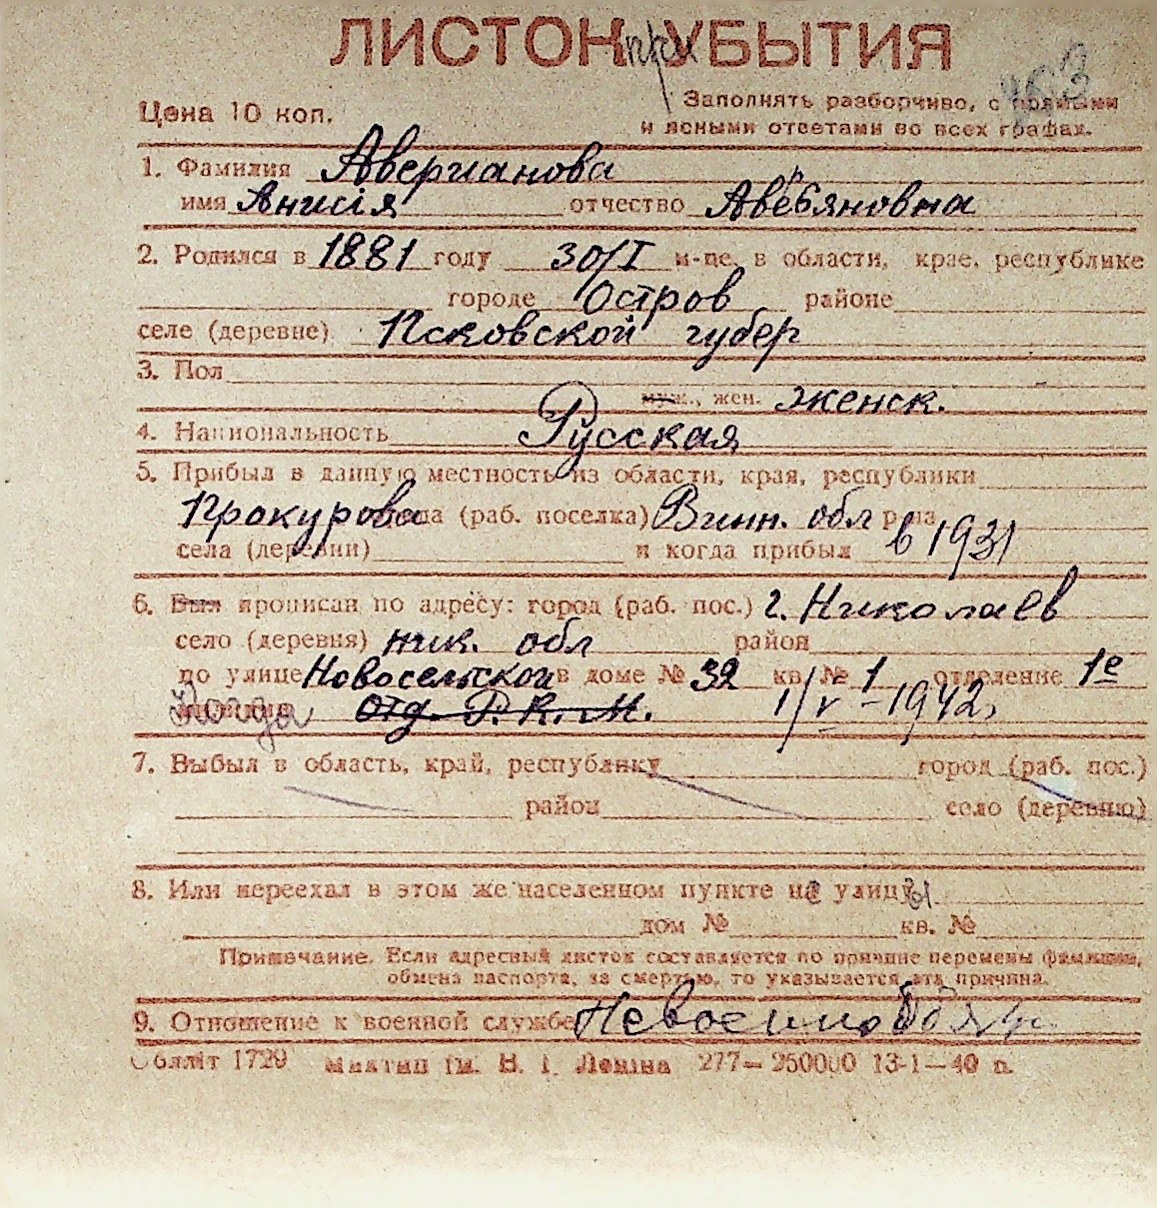 ЛИСТОК при УБЫТИЯ
403
Цена 10 коп.
Заполнять разборчиво, с прямыми
и ясными ответами во всех графах.
1. Фамилия Аверианова
имя Анисія отчество Авербяновна
2. Родился в 1881 году 30/I м-це, в области, крае, республике
городе Остров районе
селе (деревне) Псковской губер
3. Пол
муж., жен. женск.
4. Национальность Русская
5. Прибыл в данную местность из области, края, республики
Прокурова города (раб. поселка) Винн. обл р-на
села (деревни) и когда прибыл в 1931
6. Был прописан по адресу: город (раб. пос.) г. Николаев
село (деревня) ник. обл район
по улице Новосельской в доме № 32 кв. № 1 отделение 1е
милиции Когда Отд. Р. К. М. 1/V – 1942
7. Выбыл в область, край, республику город (раб. пос.)
район село (деревню)
8. Или переехал в этом же населенном пункте на улицу
дом № кв. №
Примечание. Если адресный листок составляется по причине перемены фамилии,
обмена паспорта, за смертью, то указывается эта причина.
9. Отношение к военной службе Невоеннообяз.
Обліт 1729 Миктип ім. В. І. Леніна 277– 250000 13-1–40 п.